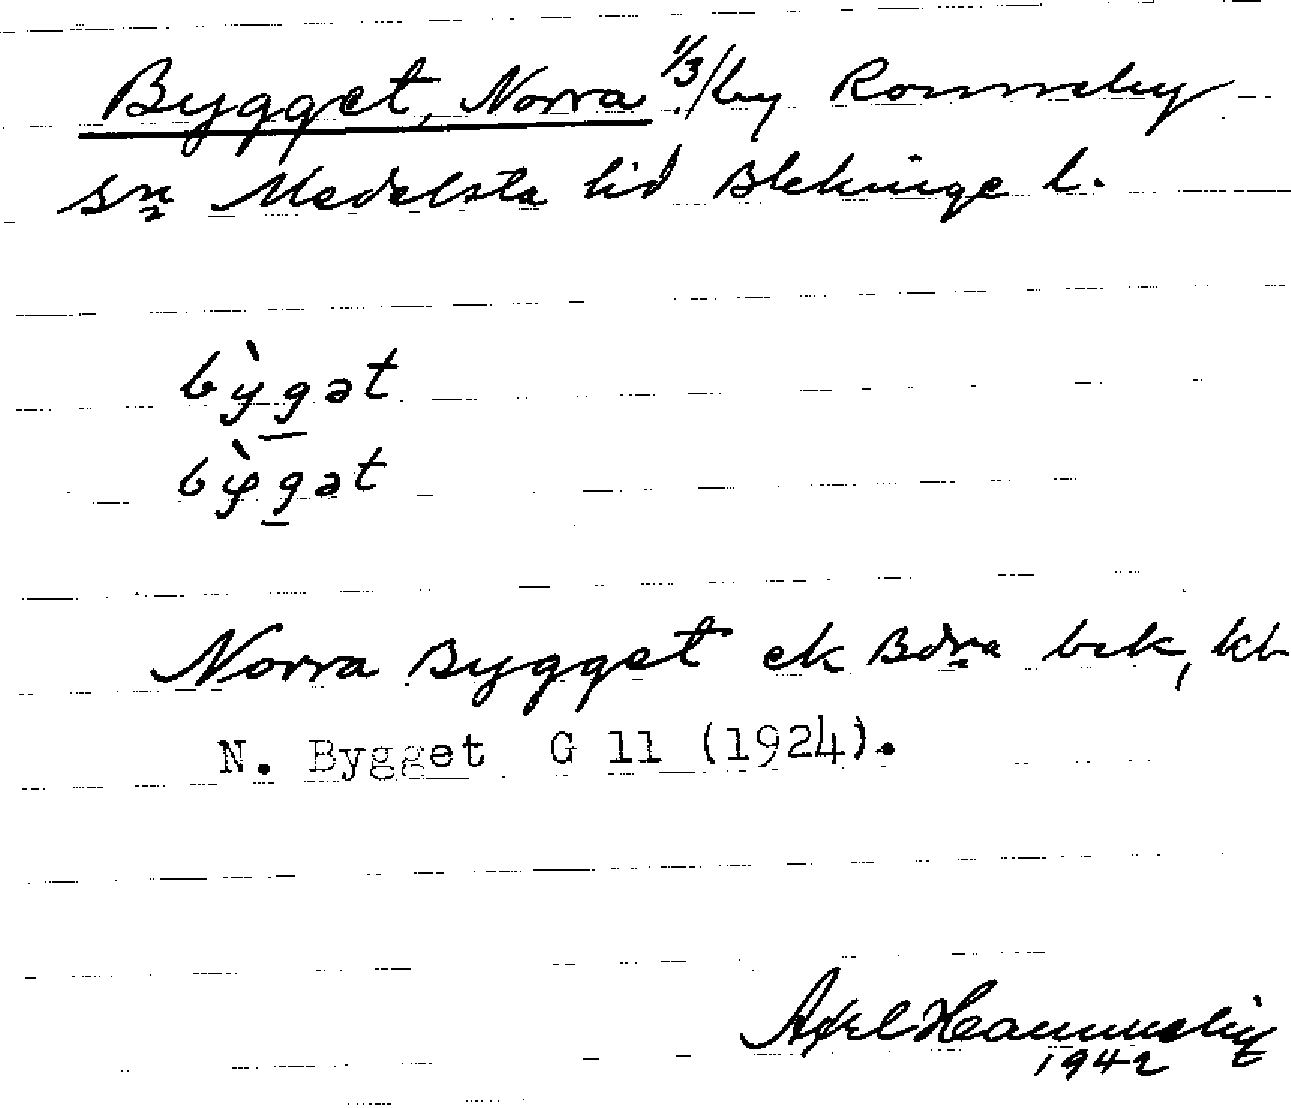 Bygget, Norra 1/3/by Ronneby
sn Medelsta hd Blekinge l.
bỳgət
bỳgət
Norra Bygget ek bek, kb
N. Bygget G 11 (1924).
Axel
1942